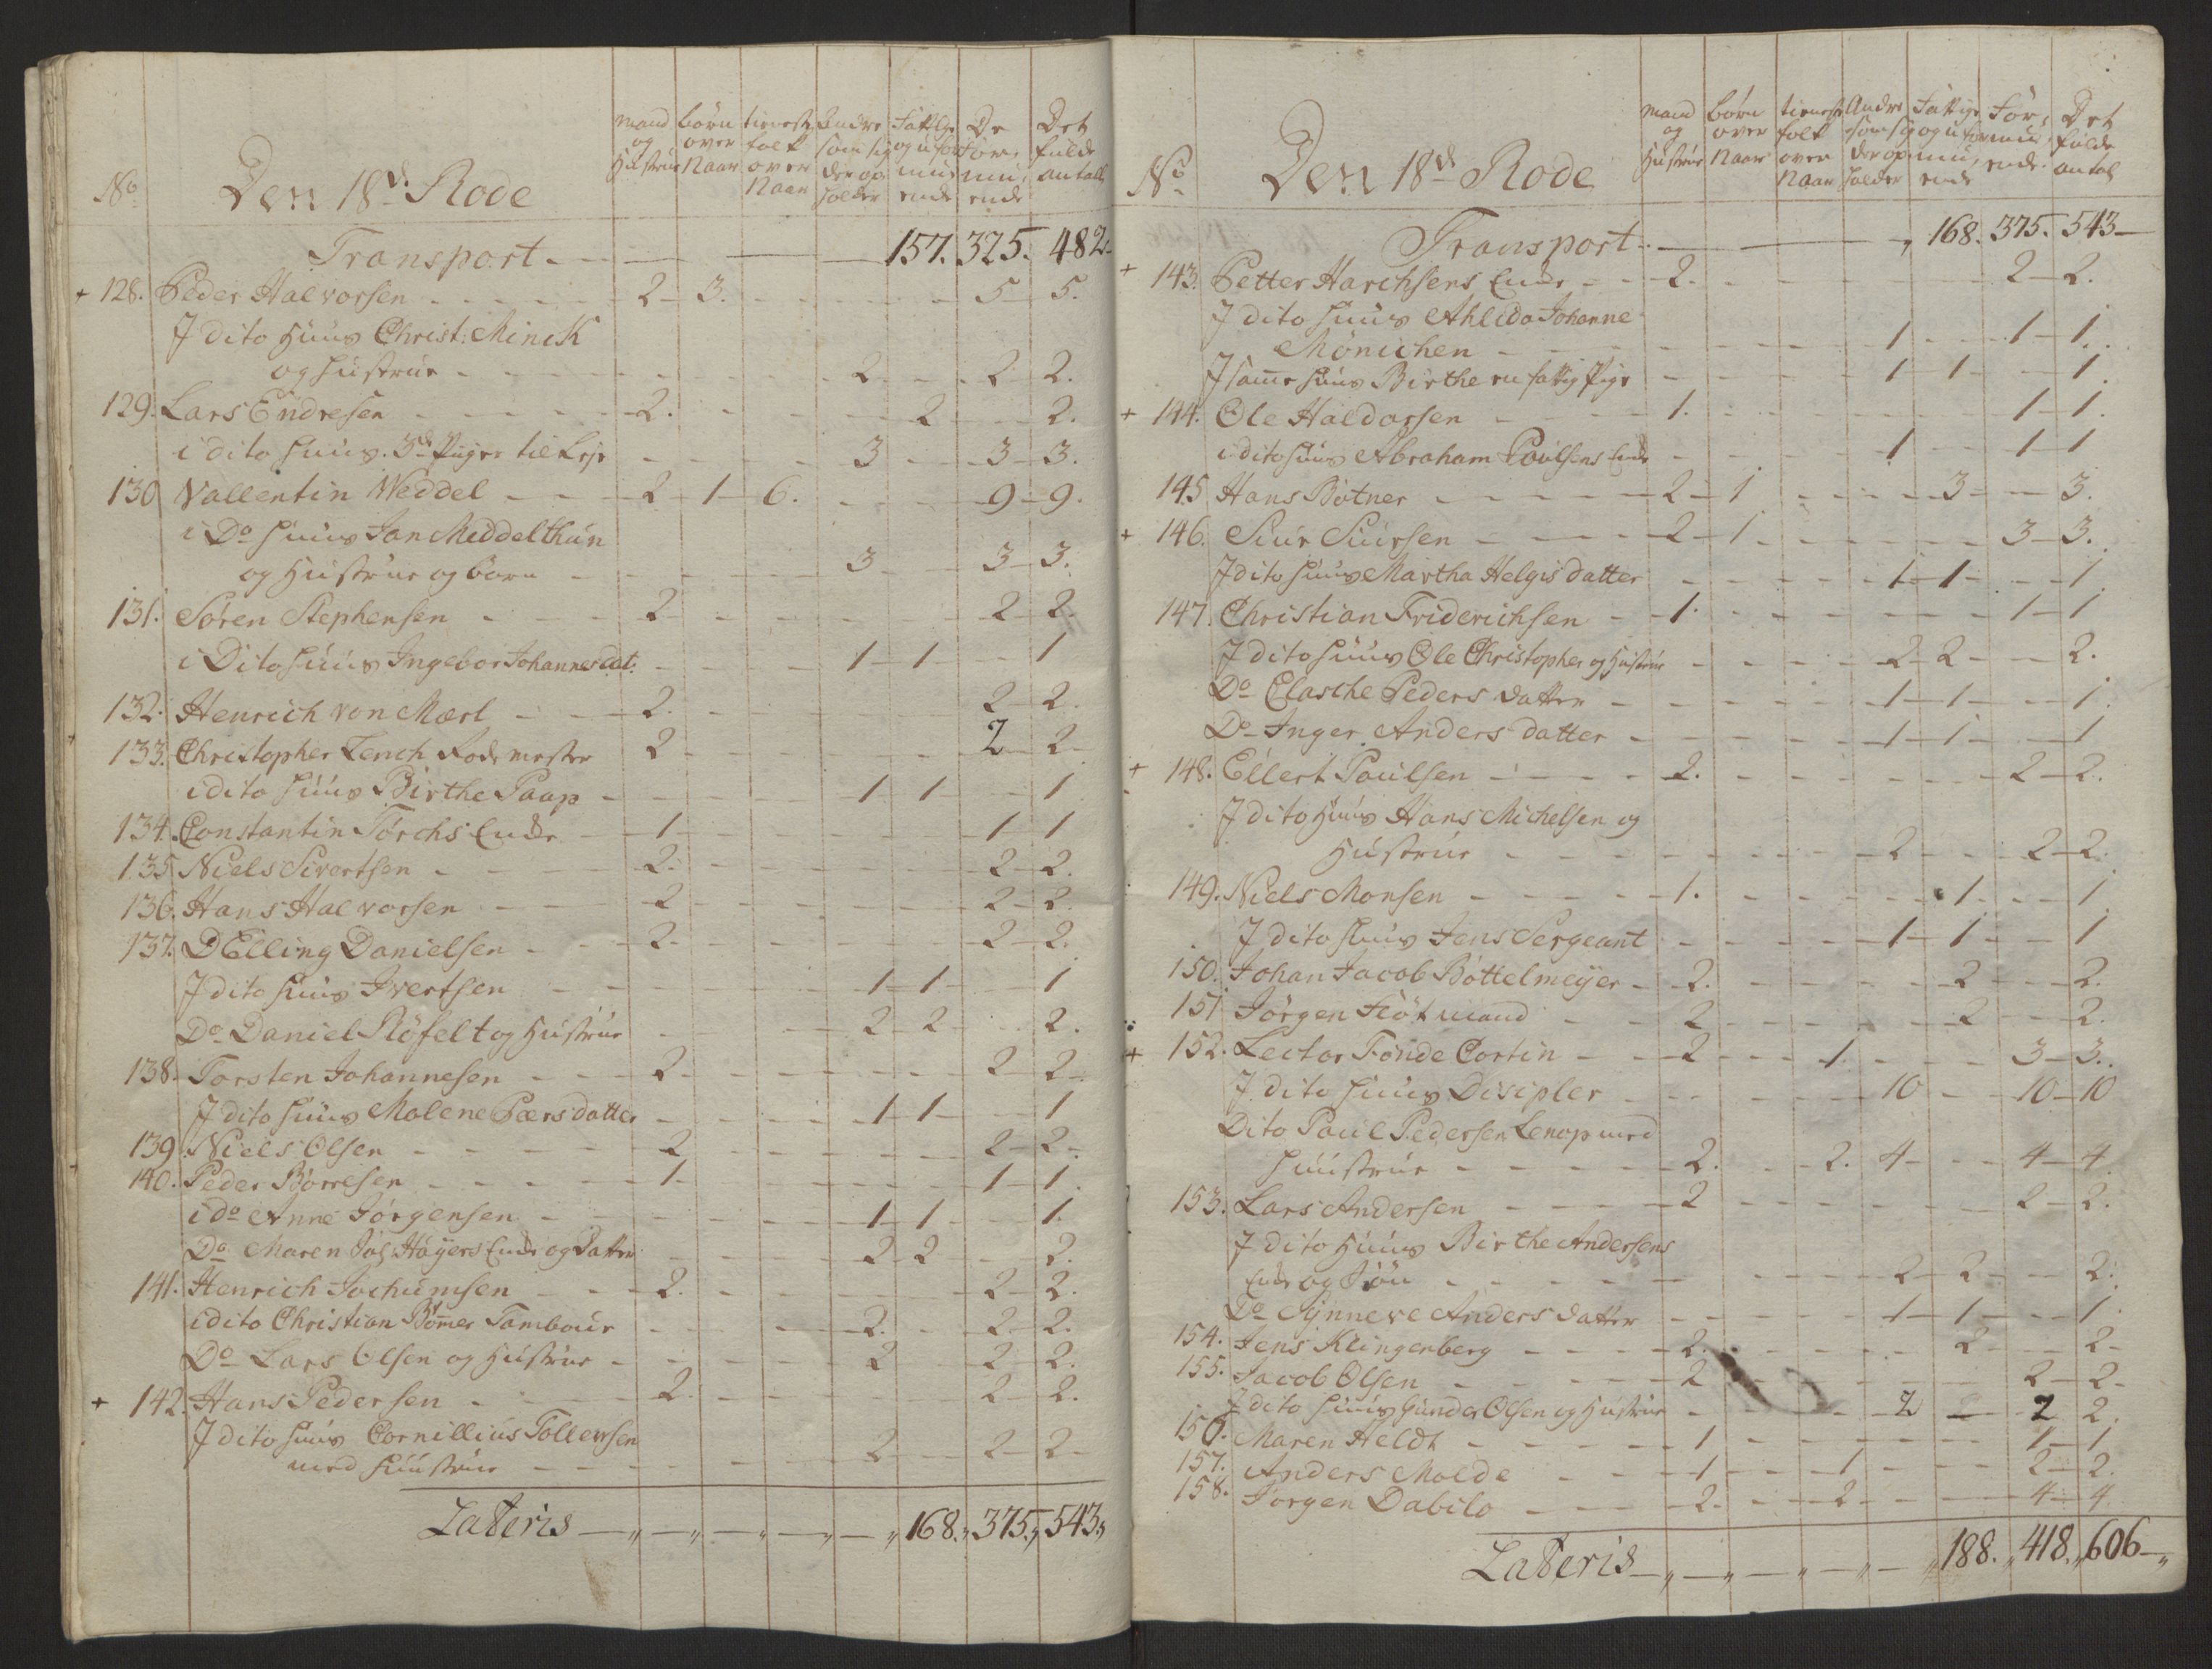 No Den 18de Rode mand og Hustrue børn over 12 aar tieneste folk over 12 aar Andre som sig der op holder Fattige og ufor muende De For muende Det fulde antall
Transport - - - 157. 325. 482-
+ 128. Peder Halvorsen - - - 2 - 3. - - - 5 5.
J dito Huus Christ: Minck
og Hustrue - - - 2 - 2 - 2.
129. Lars Endresen - - - 2. - 2 - 2.
i dito Huus. 3de Piiger til Leje - - - 3 - 3 - 3.
130 Vallentin Weddel - - - 2 - 1 - 6. - - 9 - 9.
i Do Huus Jan Middelthun
og Hustrue og børn - - - 3 - 3 - 3.
131. Søren Stephensen - - - 2 - - - 2 - 2.
i Dito Huus Ingebor Johannesdat: - - - 1 - 1 - 1
132. Henrich von Mærl - - 2. - - 2 - 2.
133. Christopher Lerich Rodemester 2 - - - 2 - 2 -
i dito Huus Birthe Paap - - - 1 - 1 - 1.
134. Constantin Törchs Enke - 1 - - - 1 1
135 Niels Sivertsen - - - 2. - - - 2 - 2.
136. Hans Halvorsen - - - 2 - - - 2 - 2.
137. D Elling Danielsen - - - 2. - - - 2 - 2.
J dito Huus Ivertsen - - - 1 - 1 - 1
Do Daniel Röfelt og Hustrue - - - 2 - 2 - 2.
138. Torsten Johannesen - - - 2 - - - 2 - 2 -
J dito Huus Malene Pærsdatter - - - 1 - 1 - 1
139. Niels Olsen - - - 2 - - - 2 - 2 -
140. Peder Börresen - - - 1 - - - 1 - 1.
i do Anne Jörgensen - - - 1 - 1 - 1.
Do Maren Höyers Enke og Datter - - - 2 - 2 - 2.
141. Henrich Jochumsen - - - 2. - - - 2 - 2.
i dito Christian Tambour - - - 2. - 2 - 2.
Do Lars Olsen og Hustrue - - - 2 - 2 - 2.
+ 142. Hans Pedersen - - - 2. - - - 2 - 2.
J dito Huus Cornillius Tollewsen
med Huustrue - - - 2 - 2 - 2 -
Lateris - - - 168. 375. 543.
No Den 18de Rode mand og Hustrue børn over 12 aar tieneste folk over 12 aar Andre som sig der op holder Fattige og ufor muende For muende Det fulde antal
Transport - - - 168. 375. 543 -
+ 143. Petter Harchsens Enke - - 2. - - - 2 - 2.
J dito Huus Ahlida Johanne
Mönichen - - - 1 - 1 - 1.
J samme Huus Birthe en fattig Pige - - - 1 - 1 - 1.
+ 144. Ole Haldorsen - - - 1. - - - 1 - 1.
i dito Huus Abraham Poulsens Enke - - - 1 - 1 - 1
145 Hans Bötner - - - 2 - 1 - - - 3 - 3.
+ 146. Siur Siursen - - - 2 - 1 - - - 3 - 3.
J dito Huus Martha Helgis datter - - - 1 - 1 - 1.
147. Christian Friderichsen - - 1. - - - 1 - 1
J dito Huus Ole Christopher og Hustrue - - - 2 - 2 - 2.
Do Clasche Peders datter - - - 1 - 1 - 1.
Do Inger Anders datter - - - 1 - 1 - 1
+ 148. Ellert Poulsen - - - 2. - - - 2 - 2.
J dito Huus Hans Michelsen og
Hustrue - - - 2 - 2 - 2.
149. Niels Monsen - - - 1. - - - 1 - 1.
J dito Huus Jens Sergeant - - - 1 - 1 - 1
150. Johan Jacob Böttelmeyer - 2. - - - 2 - 2.
151 Jörgen Flötmand - - 2 - - - 2 - 2.
+ 152. Lector Fonde Cortin - - 2 - - 1. - - - 3 - 3.
J dito Huus Disipler - - - 10 - 10 - 10
Dito Paul Pedersen med
Huustrue - - - 2. - 2. 4 - - 4 - 4.
153. Lars Andersen - - - 2 - - - 2 - 2.
J dito Huus Birthe Andersens
Enke og Sön - - - 2 - 2 - 2.
Do Synneve Anders datter - - - 1 - 1 - 1.
154. Jens Klingenberg - - - 2. - - - 2 - 2 -
155. Jacob Olsen - - - 2 - - - 2 - 2 -
J dito Huus Gunder Olsen og Hustrue - - - 2 - 2 2.
156. Maren Heldt - - - 1 - - - 1 - 1
157. Anders Molde - - - 1 - - 1 - - - 2 - 2.
158. Jörgen Dabilo - - - 2. - 2 - - - 4 - 4
Lateris - - - 188. 418. 606 -